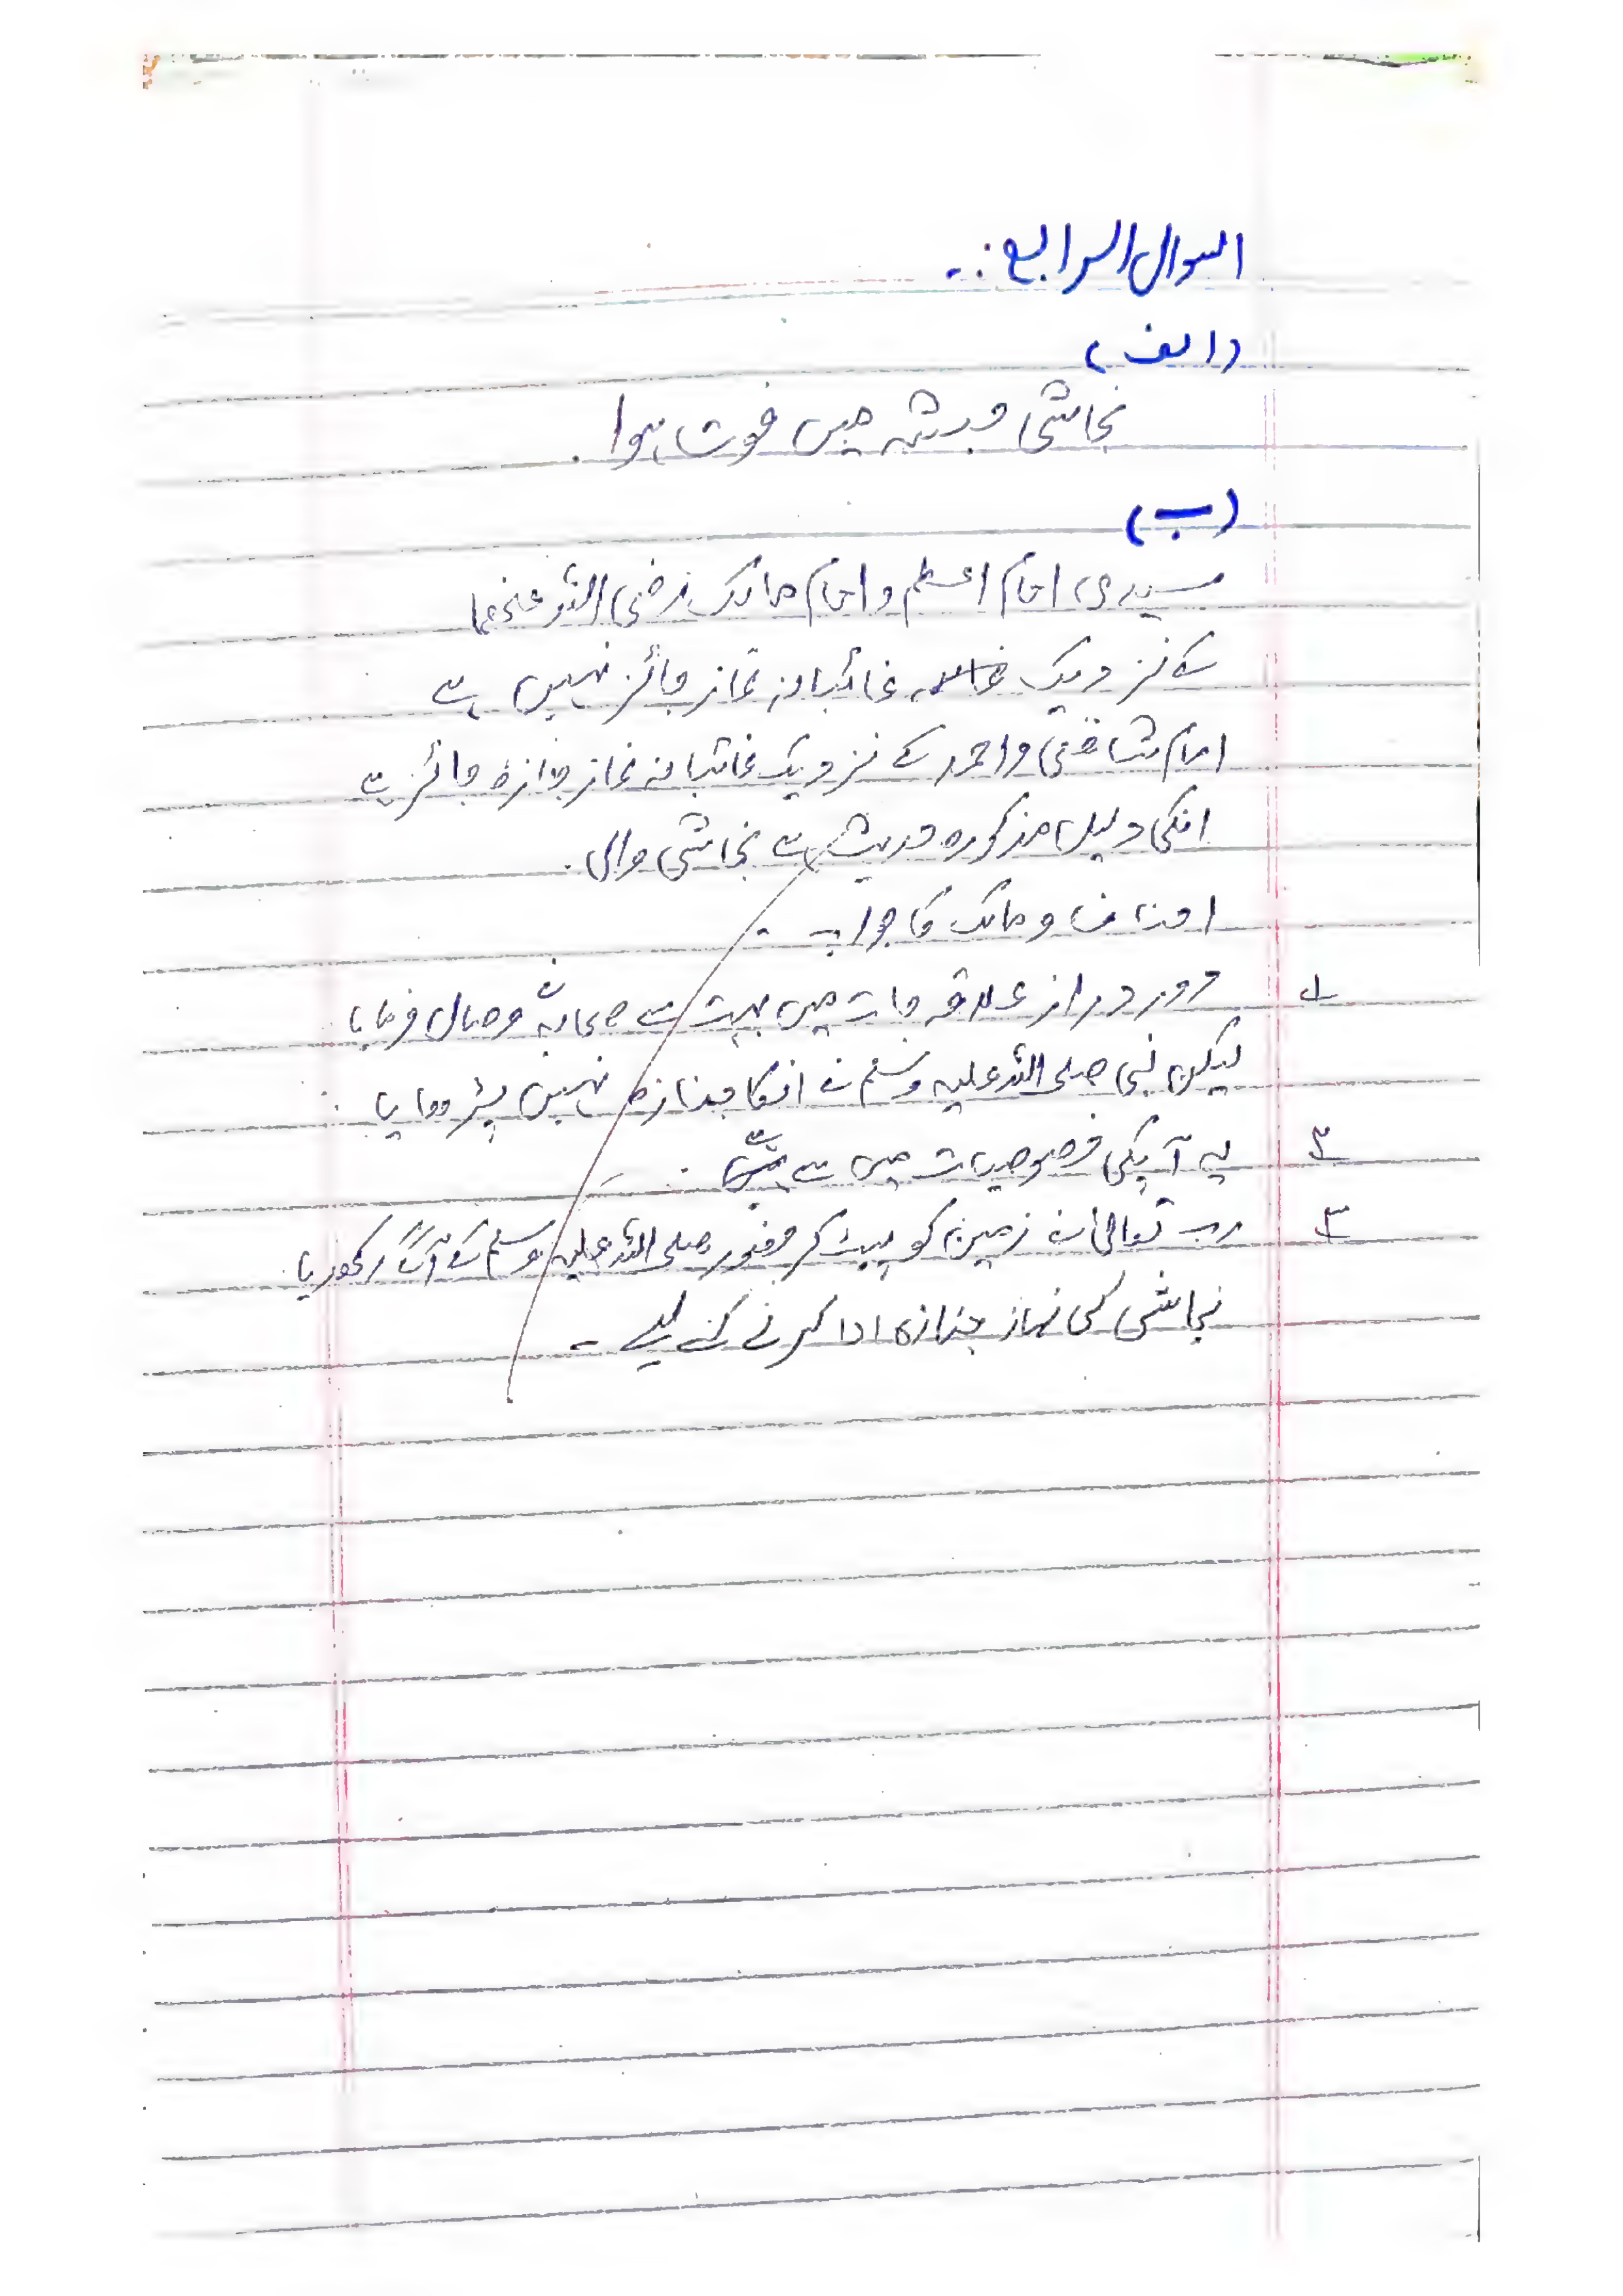 السوال الرابع :-
(الف)
نجاشی حبشہ میں فوت ہوا.
(ب)
سیدی امام اعظم و امام مالک رضی اللہ عنھما
کے نزدیک غائبانہ نماز جائز نہیں ہے
امام شافعی و احمد کے نزدیک غائبانہ نماز جنازہ جائز ہے
انکی دلیل مذکورہ حدیث ہے نجاشی والی.
احناف و مالک کا جواب -
۱ دور دراز علاقہ جات میں بہت سے صحابہ نے وصال فرمایا
لیکن نبی صلی اللہ علیہ وسلم نے انکا جنازہ نہیں پڑھوایا
۲ یہ آپکی خصوصیات میں سے ہے
۳ رب تعالیٰ نے زمین کو لپیٹ کر حضور صلی اللہ علیہ وسلم کے آگے رکھ دیا
نجاشی کی نماز جنازہ ادا کرنے کے لیے -